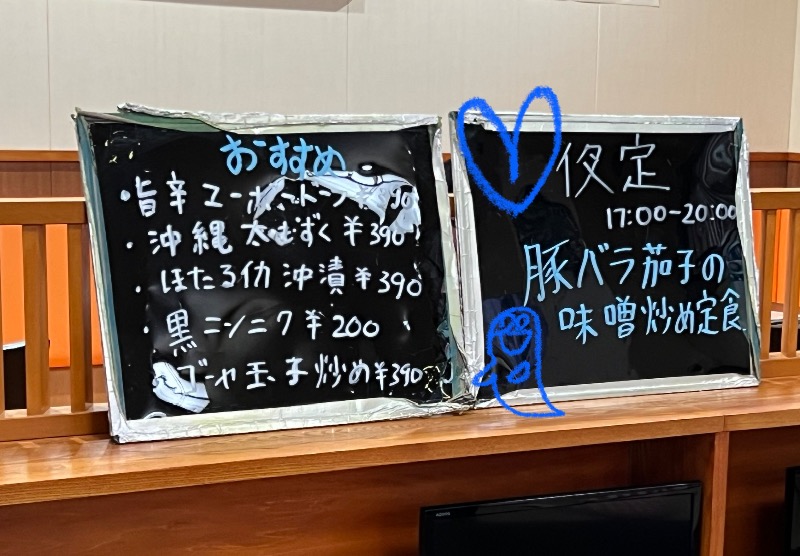 おすすめ
・旨辛ユーポ
・沖縄太もずく ¥390
・ほたるイカ沖漬 ¥390
・黒ニンニク ¥200
・ゴーヤ玉子炒め ¥390
夜定
17:00-20:00
豚バラ茄子の
味噌炒め定食